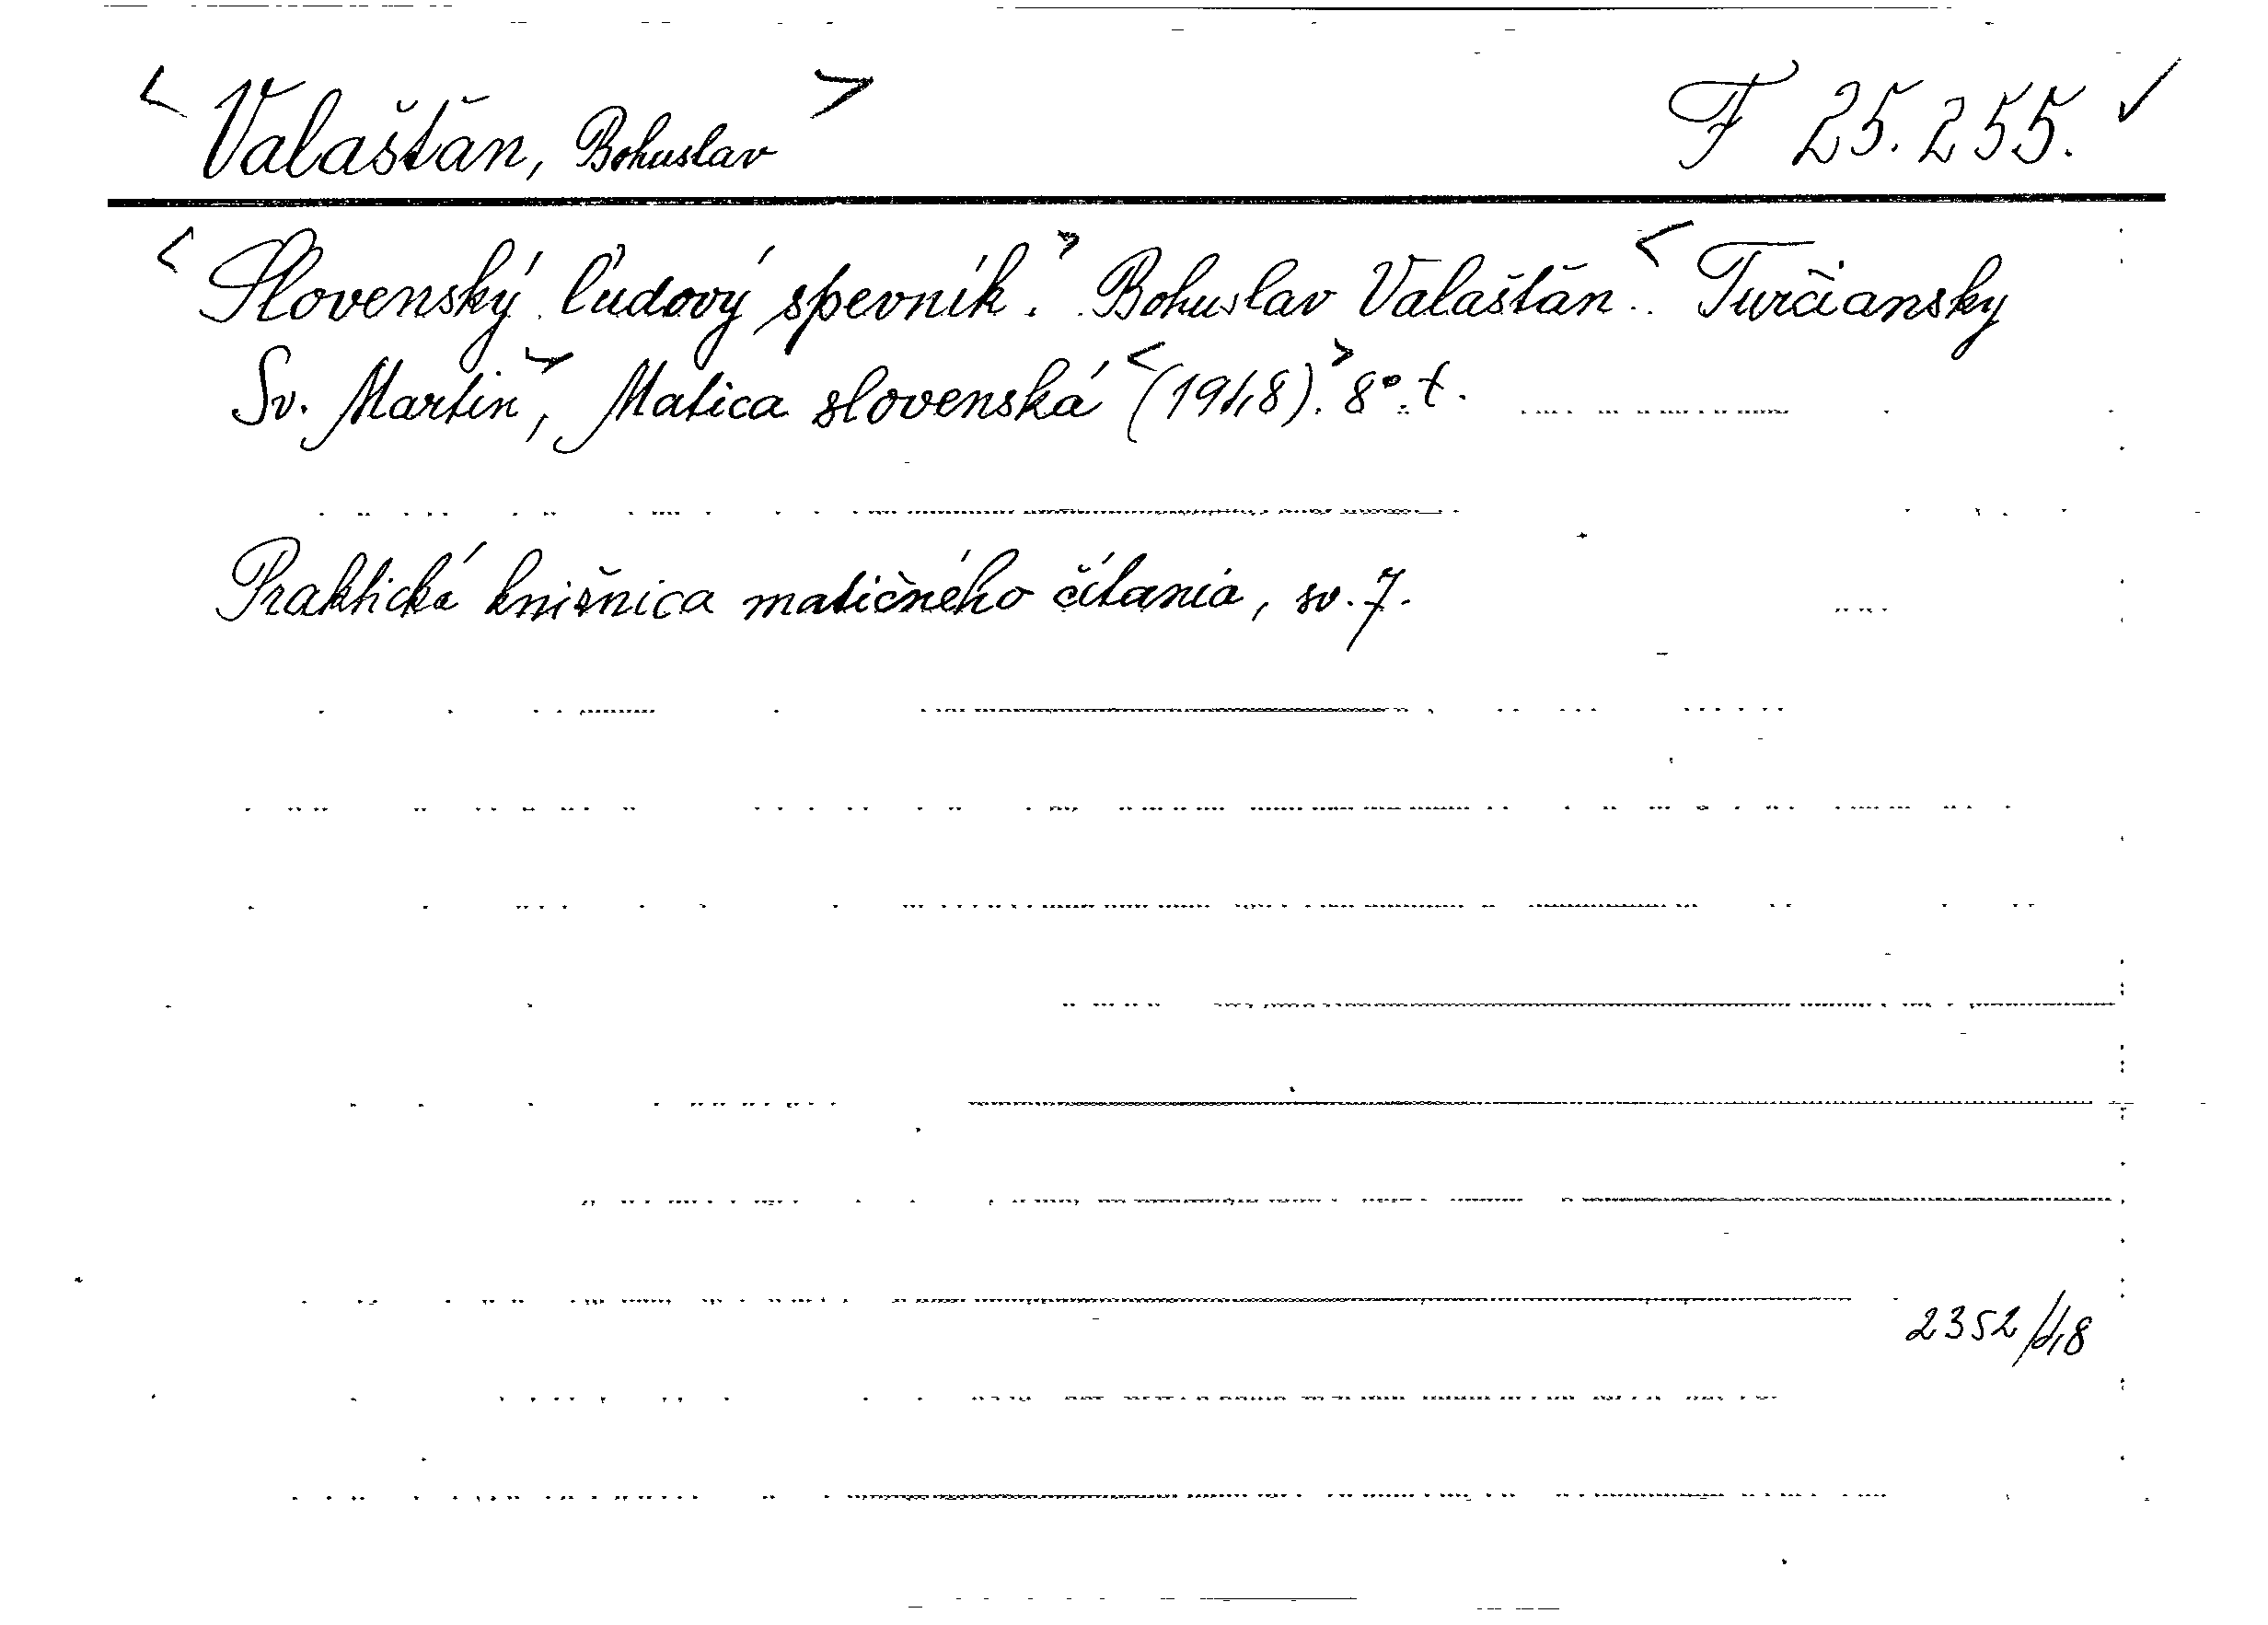 < Valaštǎn, Bohuslav > F 25.255. ✓
< Slovenský ľudový spevník. > Bohuslav Valaštǎn. < Turčiansky
Sv. Martin >, Matica slovenská < (1948). > 8°. t.
Praktická knižnica matičného čítania, sv. 7.
2352/48